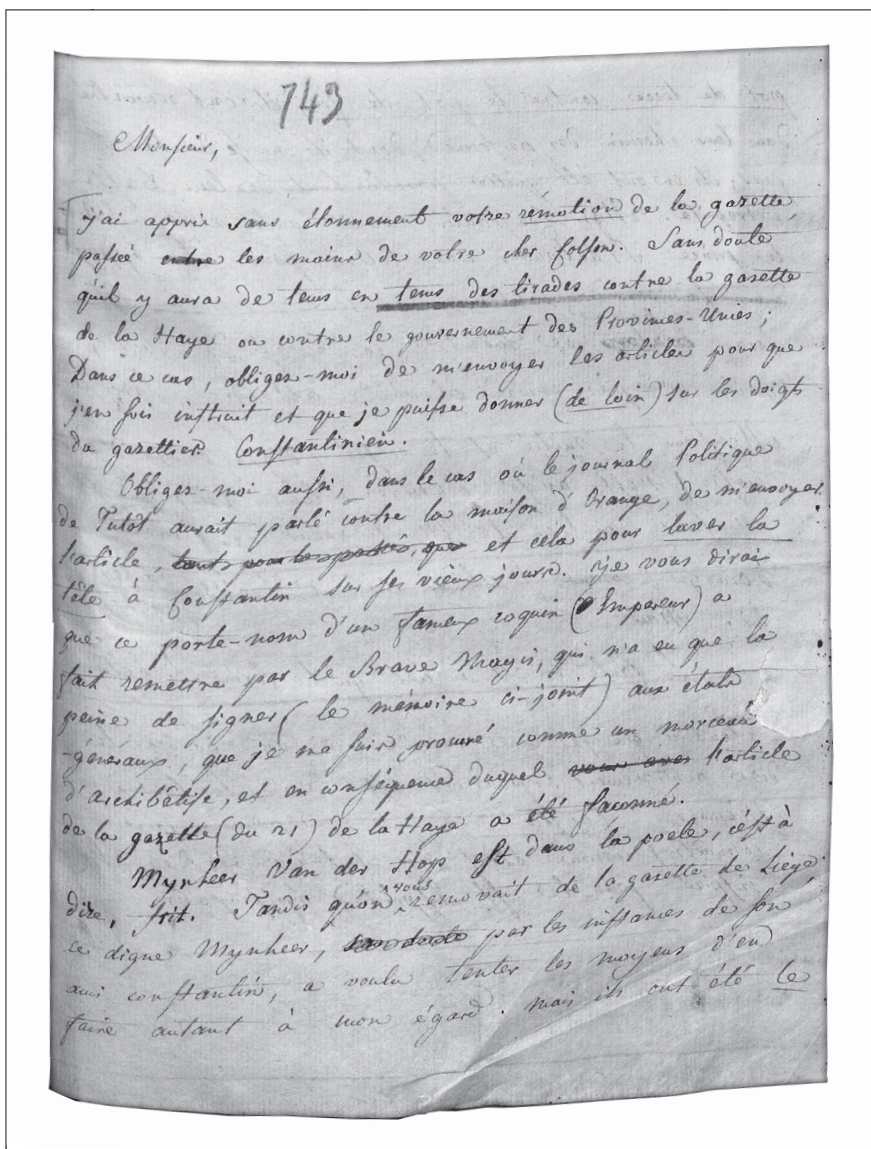 743
Monsieur,
j'ai appris sans étonnement votre rémotion de la gazette,
passée entre les mains de votre cher Colson. Sans doute
qu'il y aura de tems en tems des tirades contre la gazette
de la Haye ou contre le gouvernement des Provinces-Unies;
Dans ce cas, obligez-moi de m'envoyer les articles pour que
j'en sois instruit et que je puisse donner (de loin) sur les doigts
du gazettier Constantinien.
Obligez-moi aussi, dans le cas où le journal Politique
de Tutot aurait parlé contre la maison d'Orange, de m'envoyer
l'article, tant pour le passé, que et cela pour laver la
tête à Constantin sur ses vieux jours. je vous dirai
que ce porte-nom d'un fameux coquin (Empereur) a
fait remettre par le Brave Magis, qui n'a eu que la
peine de signer (le mémoire ci-joint) aux états
-généraux, que je me suis procuré comme un morceau
d'archibêtise, et en conséquence duquel l'article
de la gazette (du 21) de la Haye a été façonné.
Mynheer Van der Hop est dans la poele, c'est à
dire, frit. Tandis qu'on vous removait de la gazette de Liége,
ce digne Mynheer, sans doute par les instances de son
ami constantin, a voulu tenter les moyens d'en
faire autant à mon égard. mais ils ont été Le